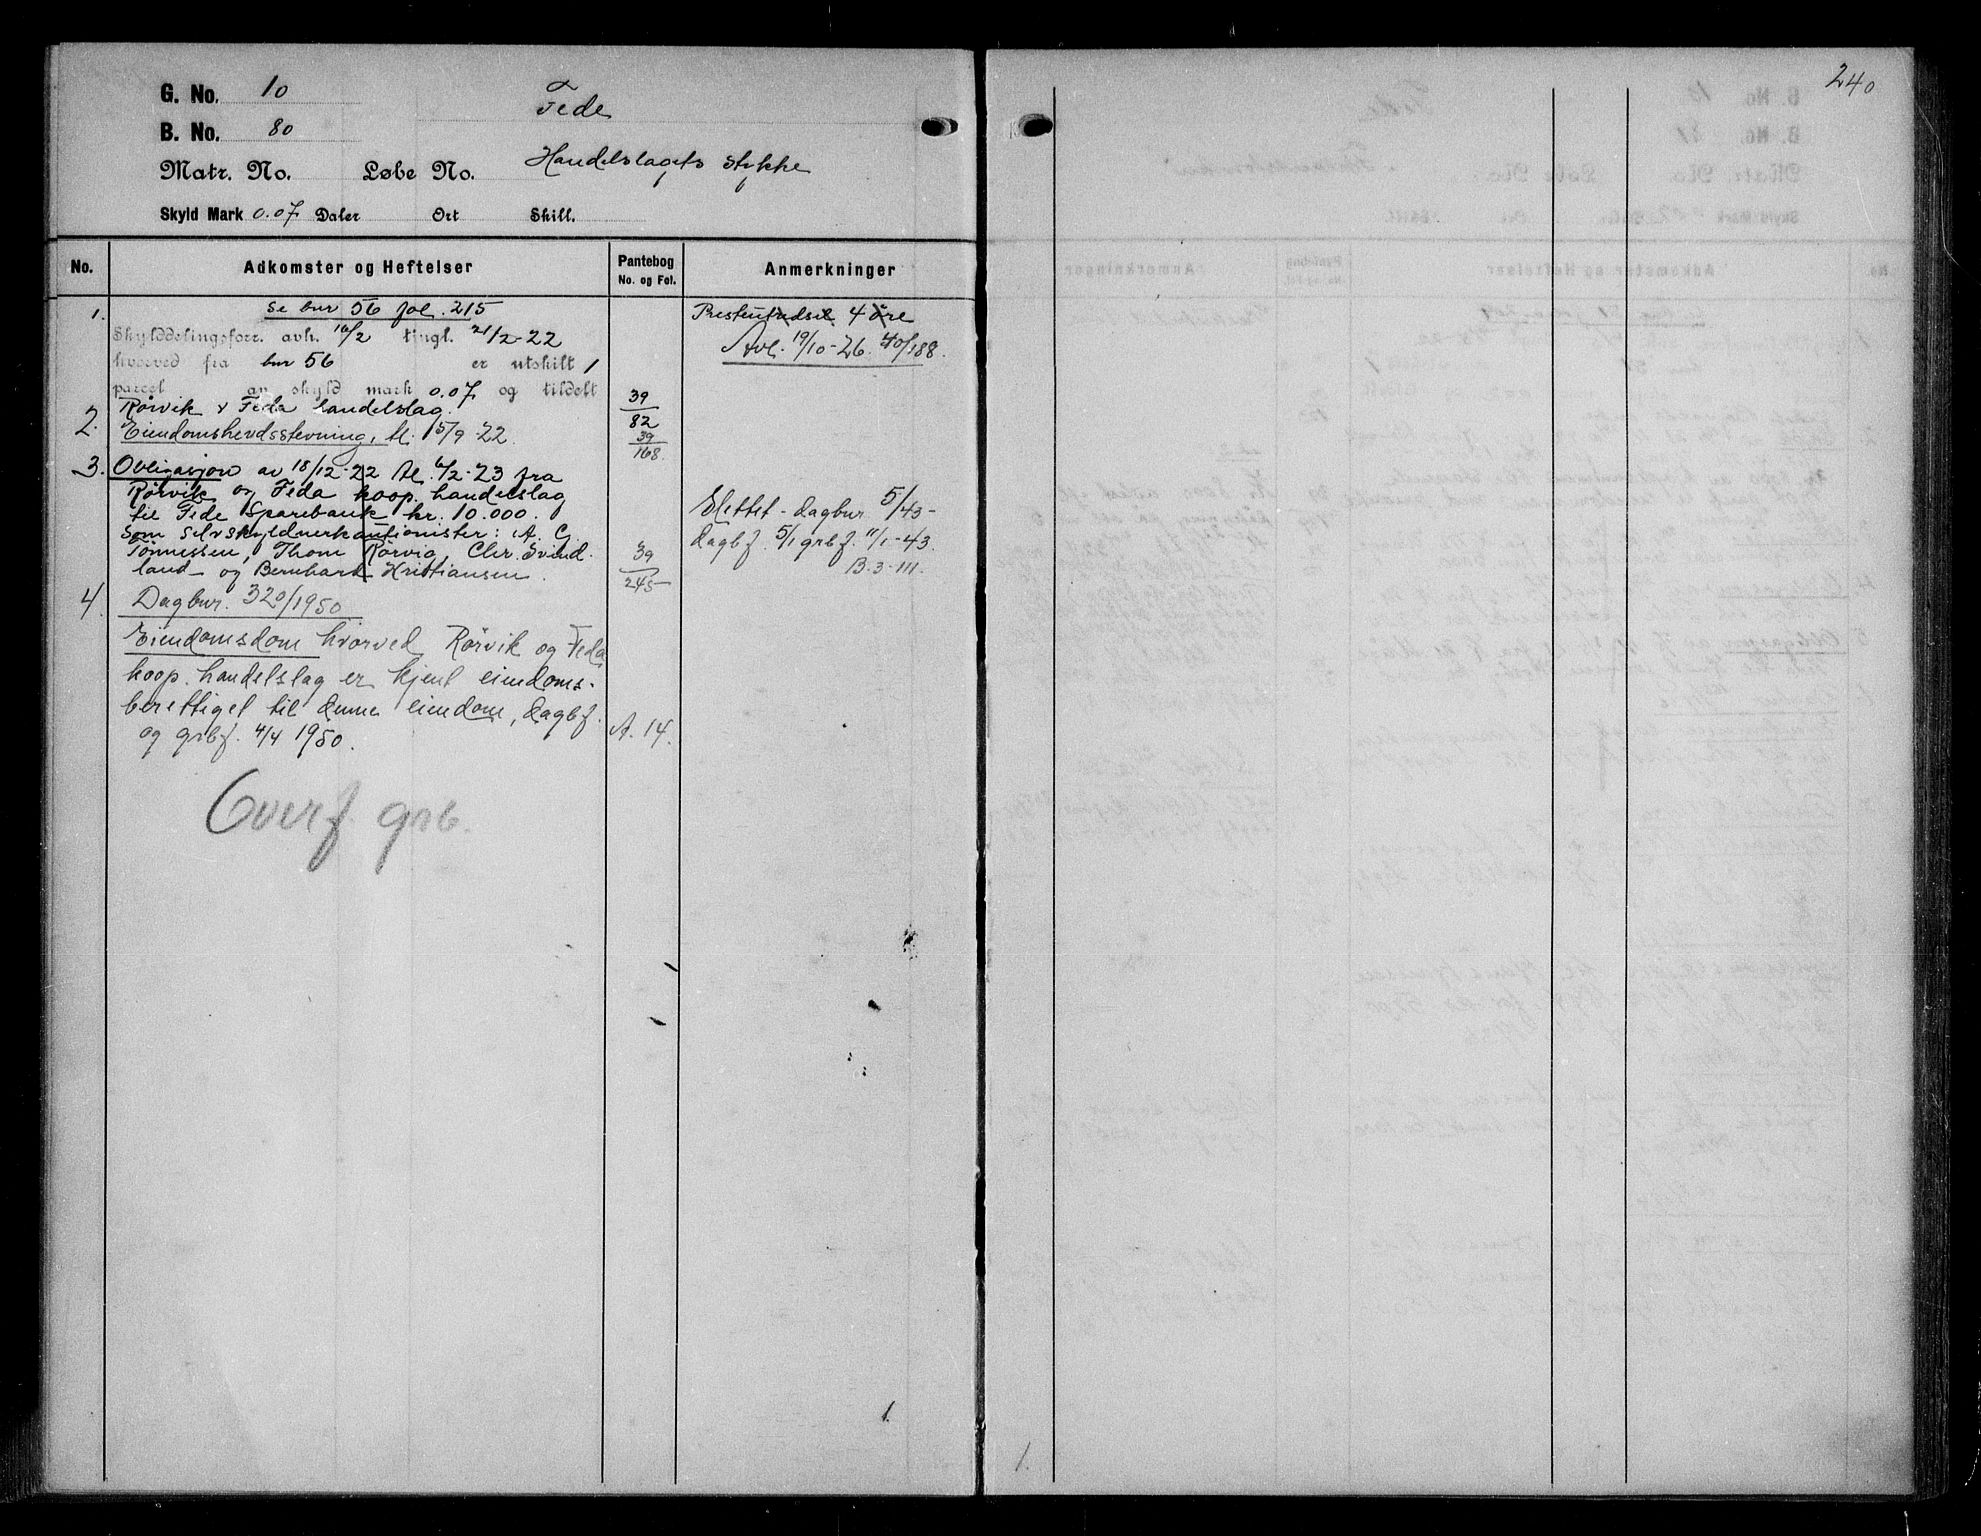 240
G. No. 10
Fede
B. No. 80
Matr. No. Løbe No. Handelslagets stykke
Skyld Mark 0.07 Daler Ort Skill.
No. Adkomster og Heftelser Pantebog No. og Fol. Anmerkninger
1. se bnr 56 fol. 215
Skylddelingsforr. avh. 16/2 tingl. 21/2-22
hvorved fra bnr 56 er utskilt 1
parcel av skyld mark 0.07 og tildelt
Rörvik & Feda handelslag. 39/82
2. Eiendomshevdsstevning, tl. 15/9-22. 39/168
3. Obligasjon av 18/12-22 tl. 6/2-23 fra
Rörvik og Feda koop. handelslag
til Fede Sparebank kr. 10.000.
som selvskyldnerkautionister: A. G.
Tönnessen, Thom Rörvig, Chr. Svind-
land og Bernhart Kristiansen. 39/245
4. Dagbnr. 320/1950
Eiendomsdom hvorved Rörvik og Feda
koop. handelslag er kjent eiendoms-
berettiget til denne eiendom, dagbf.
og grbf. 4/4 1950. A. 14.
Overf. grb.
Presteindset. 4 öre
Avl. 19/10-26. 40/188.
Slettet - dagbnr. 5/43-
dagbf. 5/1 grbf. 11/1-43.
B. 3-111.
1.
1.